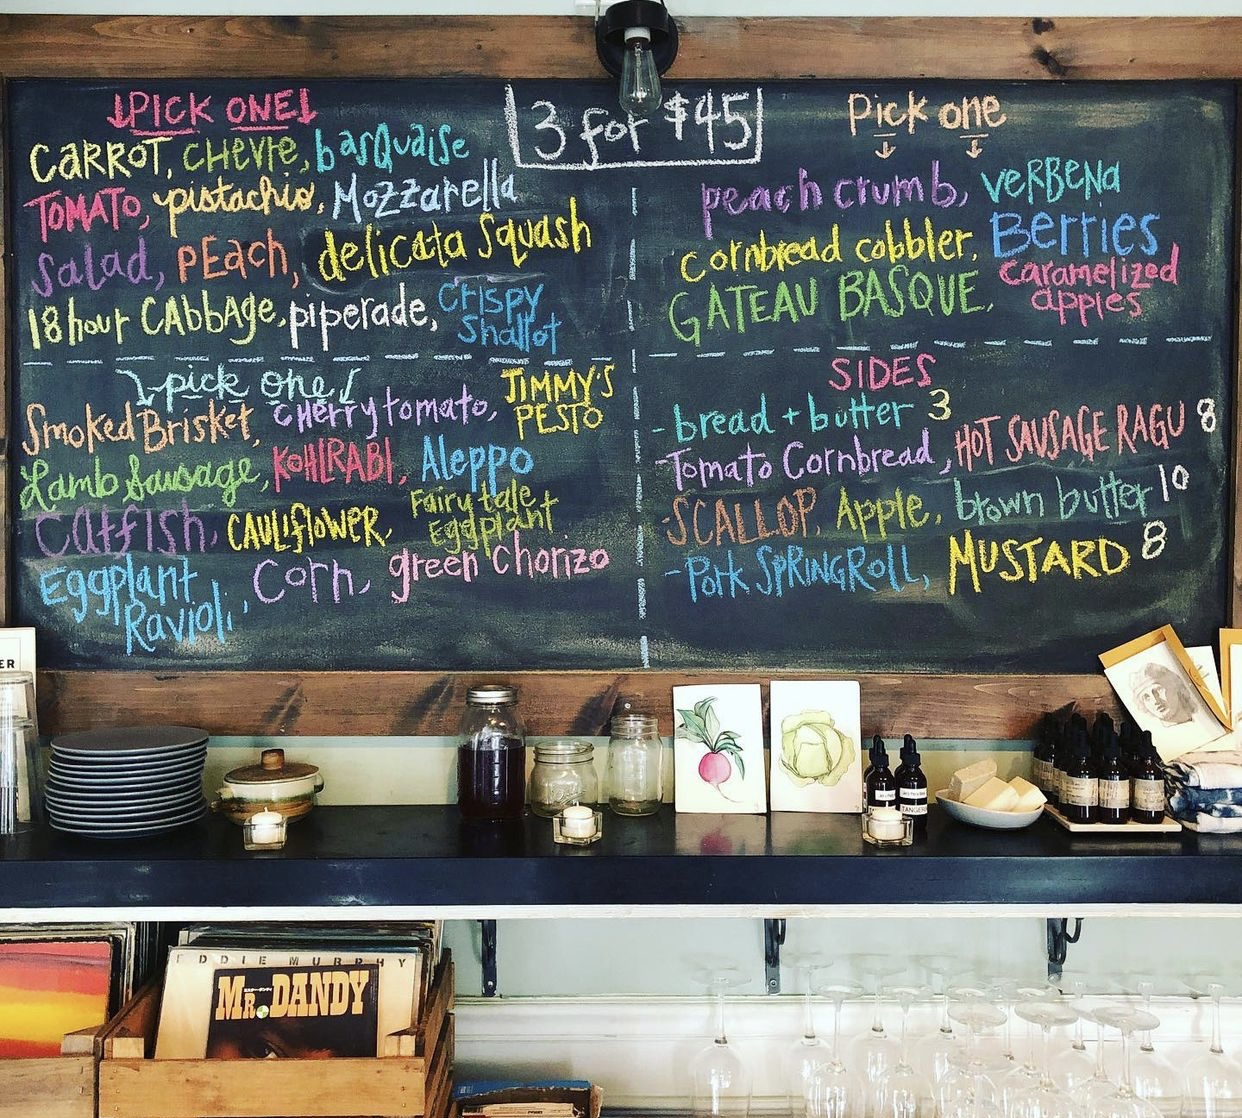 PICK ONE!
CARROT, CHEVRE, basquaise
TOMATO, pistachio, Mozzarella
Salad, PEach, delicata Squash
18 hour CAbbAge, piperade, CRISPY
Shallot
3 for $45
Pick one
peach crumb, VERBENA
Cornbread cobbler, Berries
GATEAU BASQUE, Caramelized
apples
pick one
Smoked Brisket, cherry tomato, JIMMY'S
PESTO
Lamb Sausage, KOHLRABI, Aleppo
CATFISH, CAULIFLOWER, Fairy tale
Eggplant
Eggplant Corn, green Chorizo
Ravioli,
SIDES
- bread + butter 3
- Tomato Cornbread, HOT SAUSAGE RAGU 8
- SCALLOP, Apple, brown butter 10
- Pork SPRING ROLL, MUSTARD 8
ER
EDDIE MURPHY
MR. DANDY